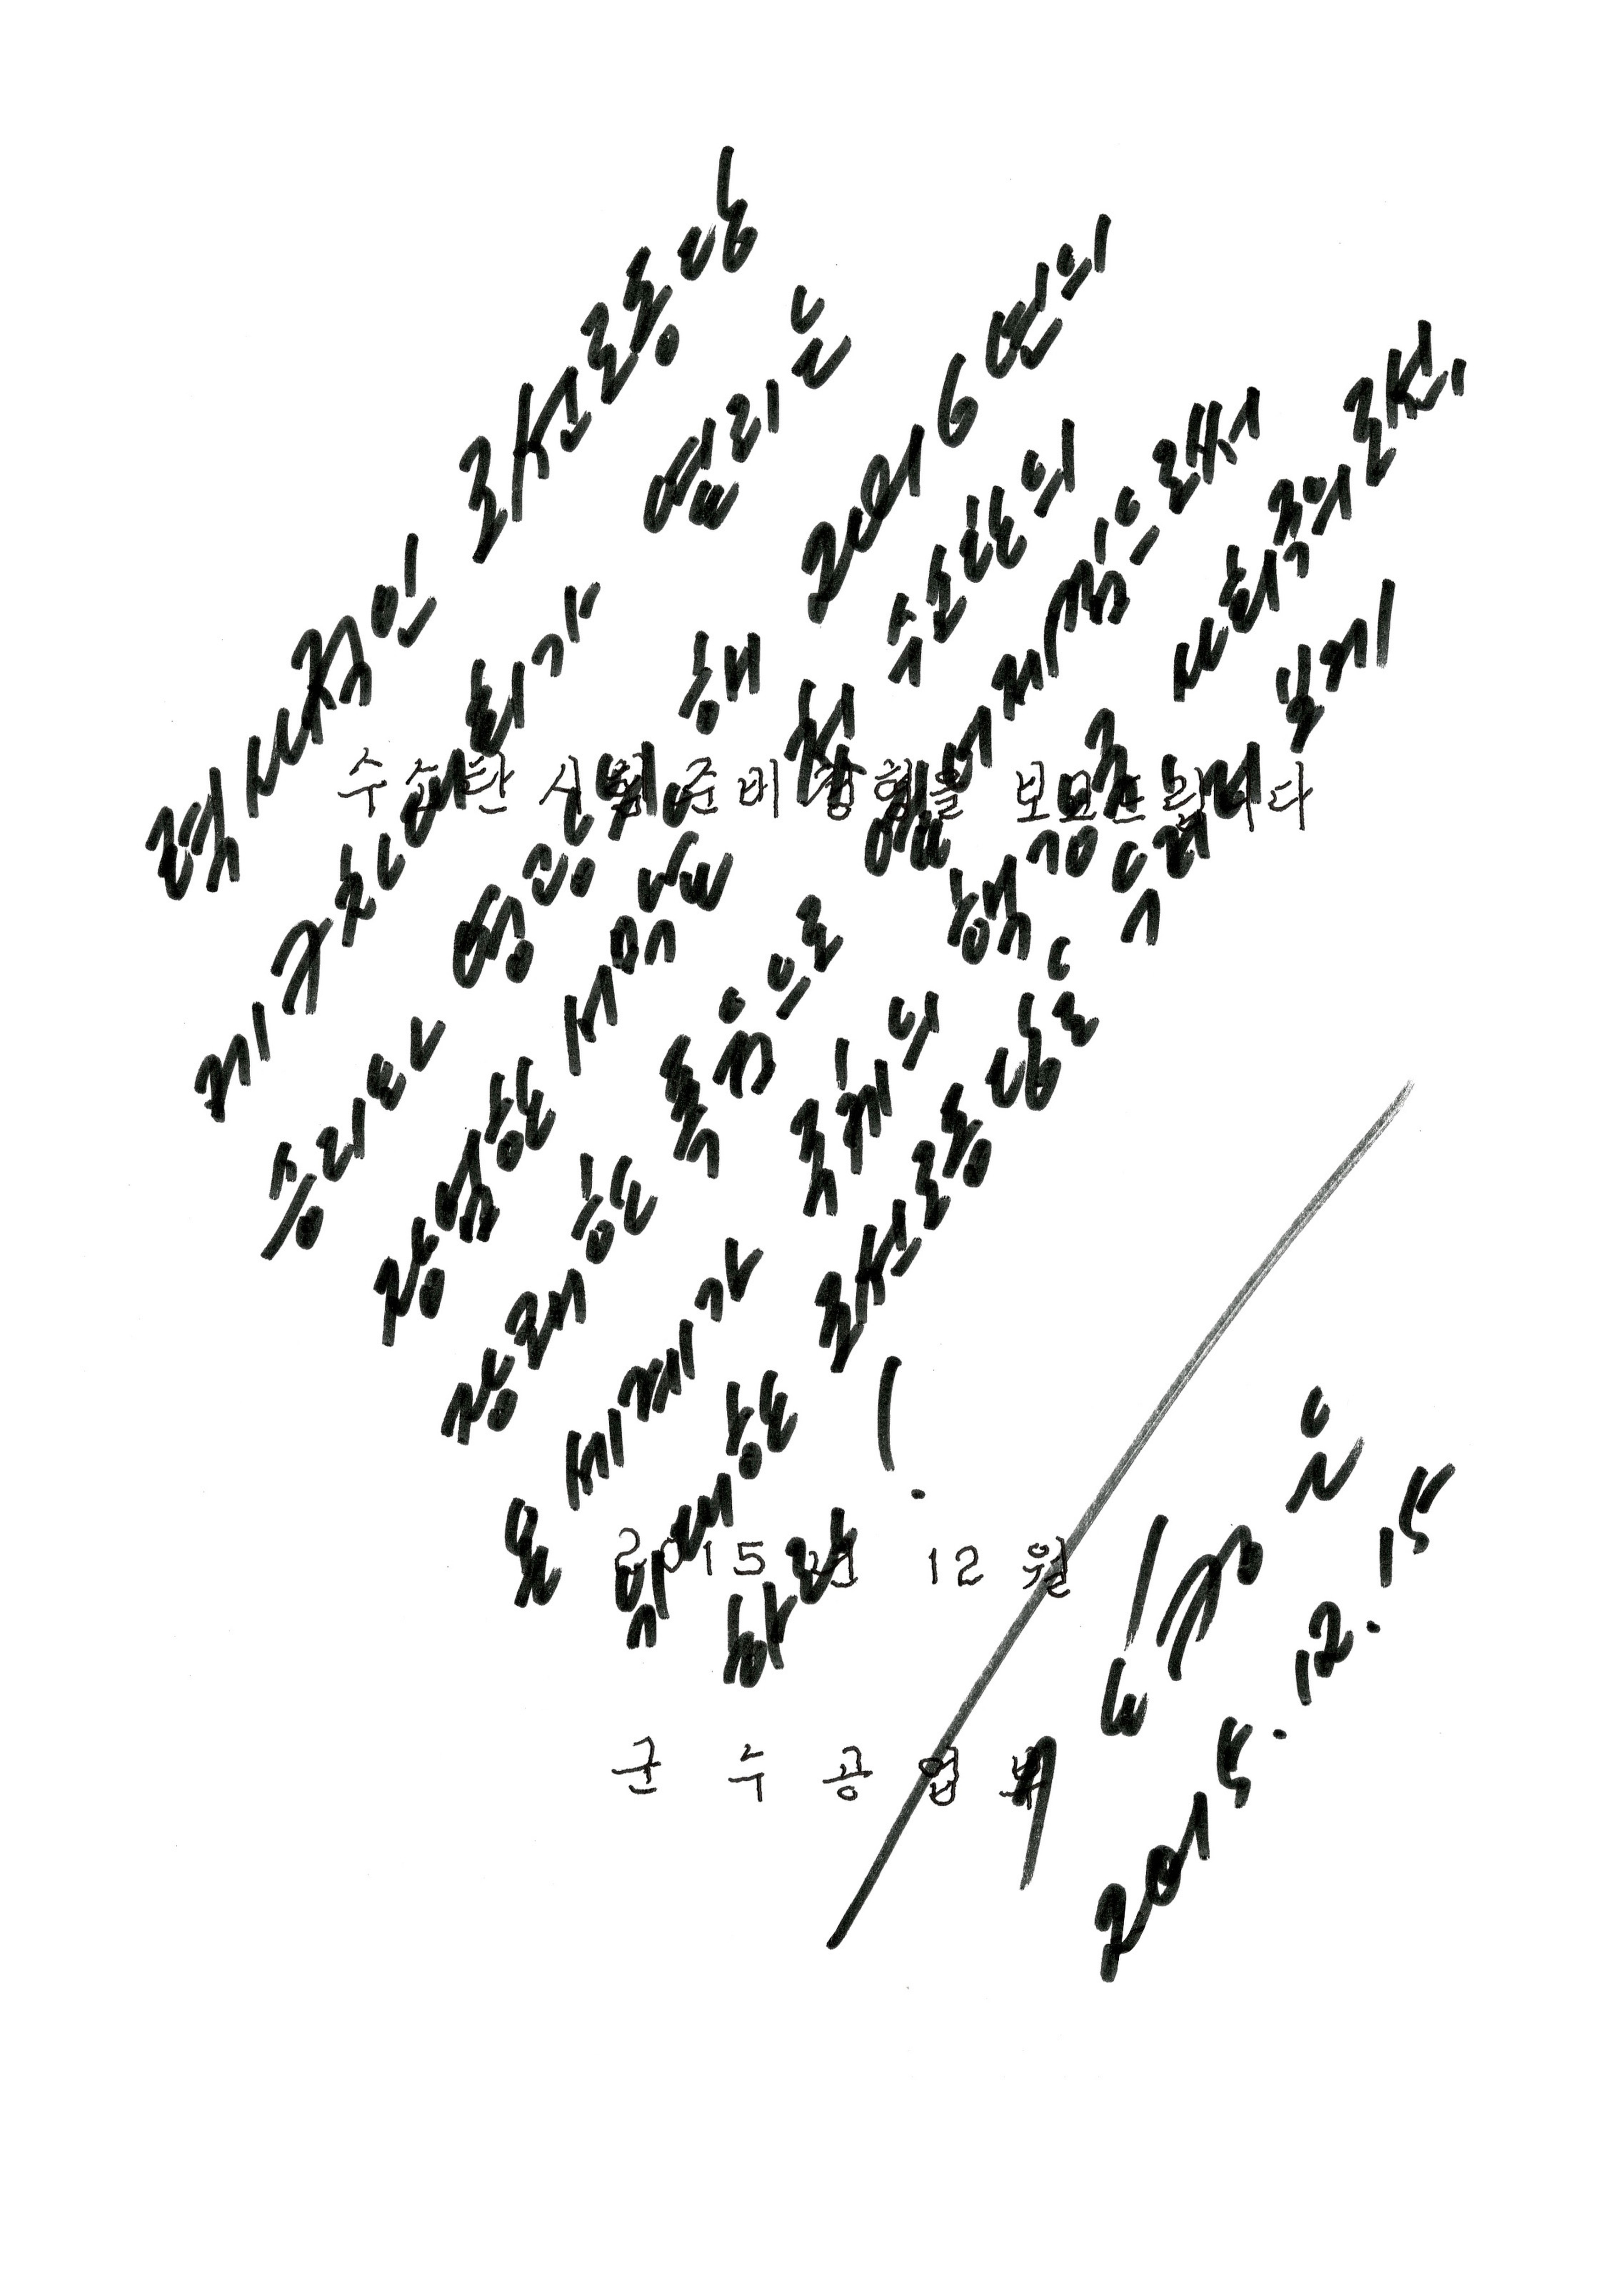 력사적인 조선로동당
제7차대회가 열리는
승리와 영광의 해 2016년의
장엄한 서막을 첫 수소탄의
장쾌한 폭음으로 열어제낌으로써
온 세계가 주체의 핵강국, 사회주의조선,
위대한 조선로동당을 우러러보게
하라!
수소탄 시험준비정형을 보고드립니다
2015년 12월
군수공업부
김정은
2015.12.15